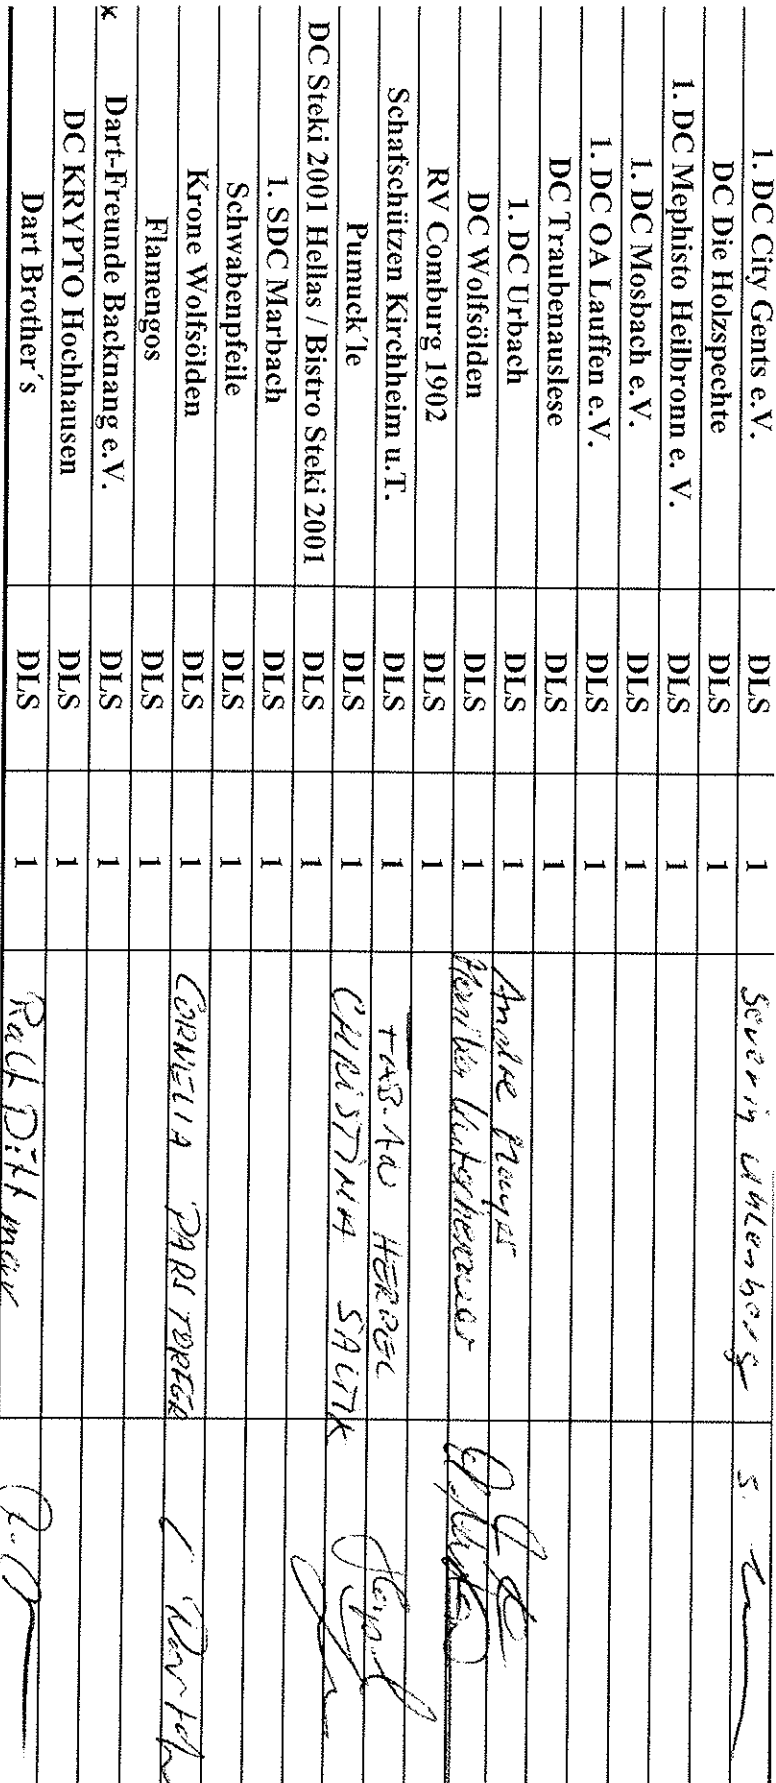 1. DC City Gents e.V. DLS 1 Severin Uhlenberg S.
DC Die Holzspechte DLS 1
1. DC Mephisto Heilbronn e. V. DLS 1
1. DC Mosbach e.V. DLS 1
1. DC OA Lauffen e.V. DLS 1
DC Traubenauslese DLS 1
1. DC Urbach DLS 1 Andre
DC Wolfsölden DLS 1
RV Comburg 1902 DLS 1
Schafschützen Kirchheim u.T. DLS 1
Pumuck´le DLS 1 CHRISTINA
DC Steki 2001 Hellas / Bistro Steki 2001 DLS 1
1. SDC Marbach DLS 1
Schwabenpfeile DLS 1
Krone Wolfsölden DLS 1 CORNELIA
Flamengos DLS 1
x Dart-Freunde Backnang e.V. DLS 1
DC KRYPTO Hochhausen DLS 1
Dart Brother´s DLS 1 Ralf Dittmar